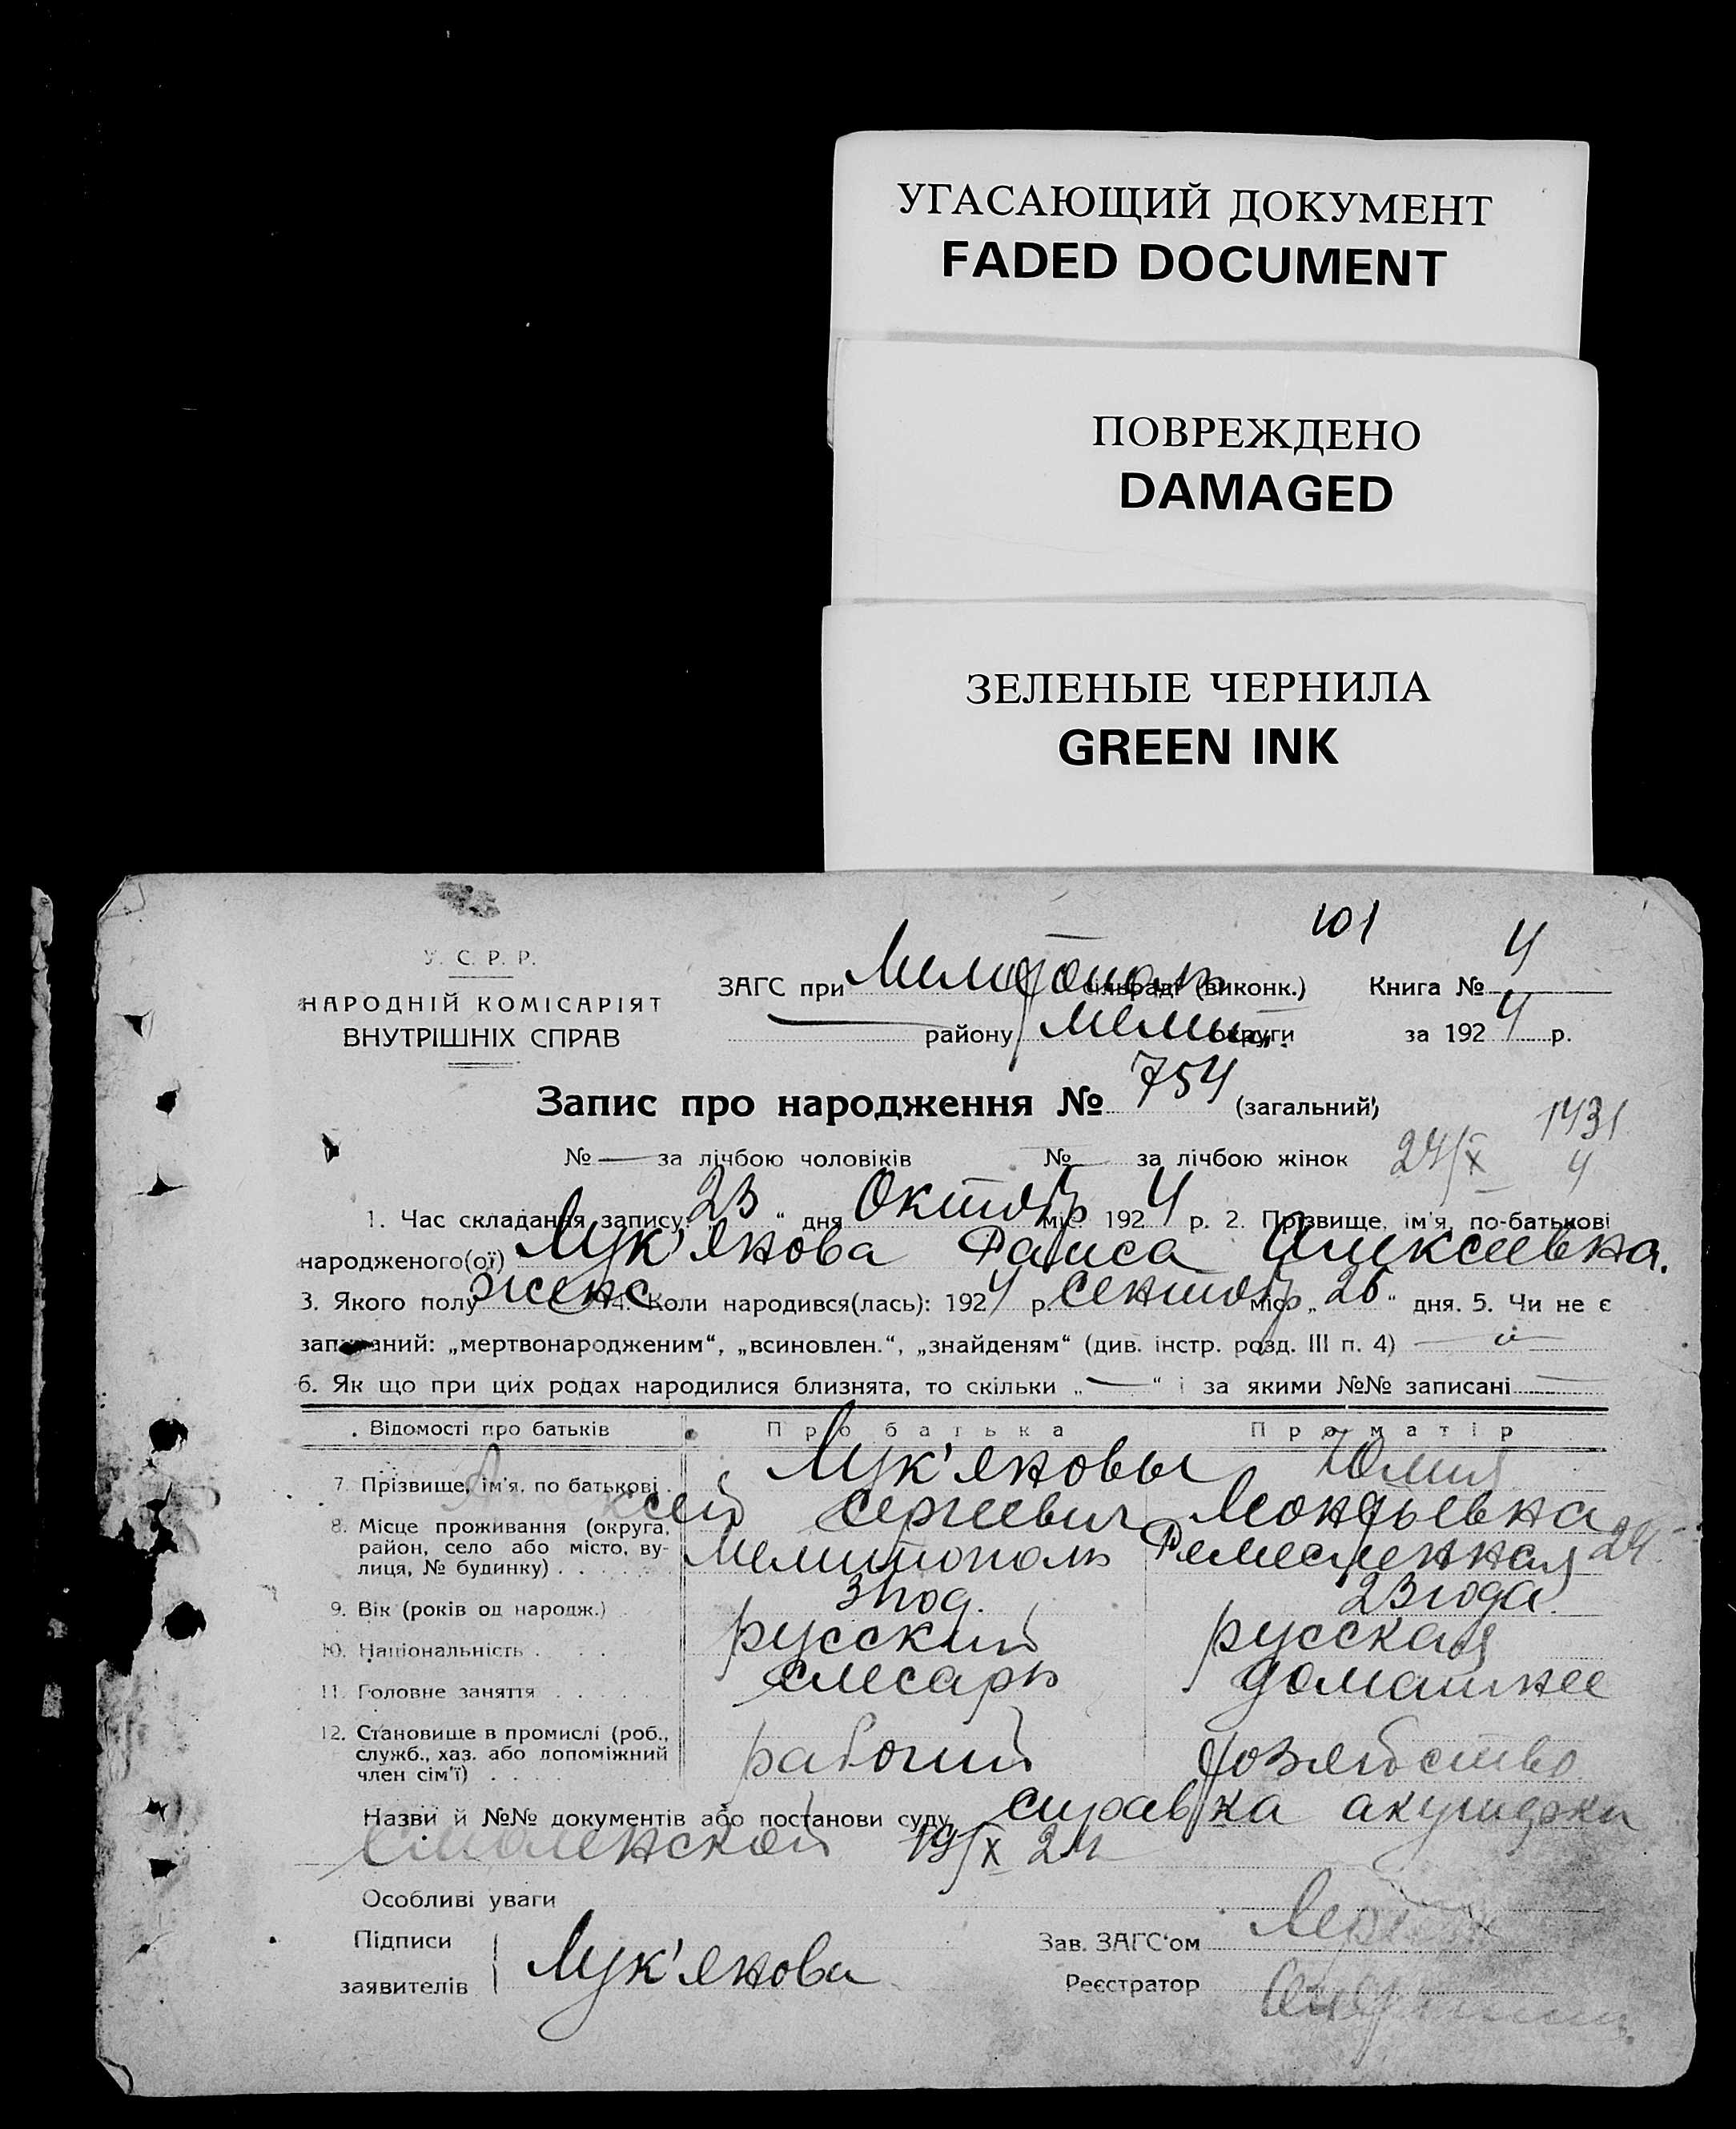 УГАСАЮЩИЙ ДОКУМЕНТ
FADED DOCUMENT
ПОВРЕЖДЕНО
DAMAGED
ЗЕЛЕНЫЕ ЧЕРНИЛА
GREEN INK
101
У. С. Р. Р.
НАРОДНІЙ КОМІСАРІЯТ
ВНУТРІШНІХ СПРАВ
ЗАГС при (виконк.) Книга № 4
району Мелит. округи за 1924 р.
Запис про народження № 754 (загальний)
1431
№ — за лічбою чоловіків № — за лічбою жінок 24/X 4
1. Час складання запису: „23“ дня Октябр міс. 1924 р. 2. Прізвище, ім'я, по-батькові
народженого(ої) Лук'янова Раиса Алексеевна.
3. Якого полу женс 4. Коли народився(лась): 1924 р. Сентябр міс. „26“ дня. 5. Чи не є
записаний: „мертвонародженим“, „всиновлен.“, „знайденям“ (див. інстр. розд. III п. 4) —
6. Як що при цих родах народилися близнята, то скільки „—“ і за якими №№ записані —
Відомості про батьків Про батька Про матір
7. Прізвище, ім'я, по батькові Лук'яновы Юлия
Алексей Сергеевич Леонтьевна
8. Місце проживання (округа, район, село або місто, ву-
лиця, № будинку) Мелитополь Ремесленная 24
9. Вік (років од народж.) 31 год. 23 года.
10. Національність русский русская
11. Головне заняття слесарь домашнее
12. Становище в промислі (роб.,
служб., хаз. або допоміжний
член сім'ї) рабочий хозяйство
Назви й №№ документів або постанови суду справка акушерки
Смоленской 19/X 24
Особливі уваги
Підписи
заявителів Лук'янова
Зав. ЗАГС'ом
Реєстратор